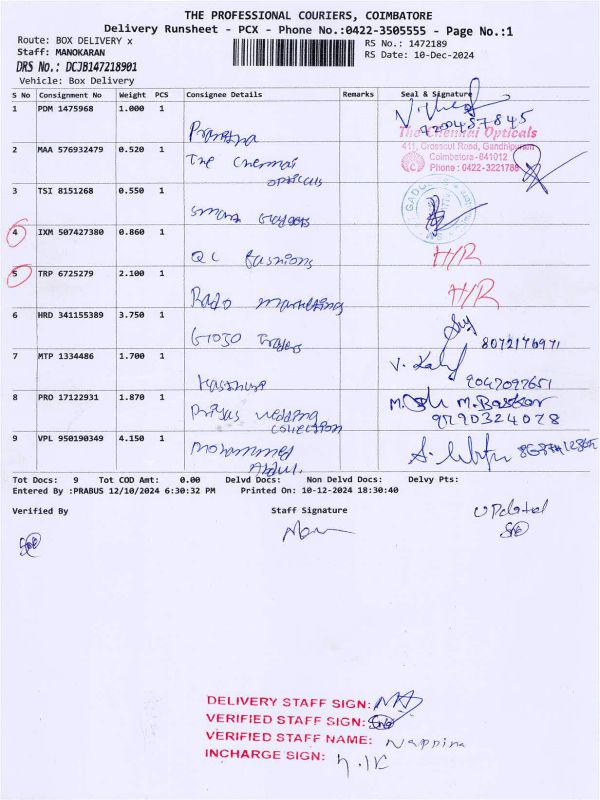 THE PROFESSIONAL COURIERS, COIMBATORE
Delivery Runsheet - PCX - Phone No.:0422-3505555 - Page No.:1
Route: BOX DELIVERY x
RS No.: 1472189
Staff: MANOKARAN
RS Date: 10-Dec-2024
DRS No.: DCJB147218901
Vehicle: Box Delivery
S No Consignment No Weight PCS Consignee Details Remarks Seal & Signature
1 PDM 1475968 1.000 1
2 MAA 576932479 0.520 1 The Chennai opticals
The Chennai Opticals
411, Crosscut Road, Gandhipuram
Coimbatore-641012
Phone : 0422-3221788
3 TSI 8151268 0.550 1
4 IXM 507427380 0.860 1 QC fashions H/R
5 TRP 6725279 2.100 1 Rado marketing H/R
6 HRD 341155389 3.750 1 8072176971
7 MTP 1334486 1.700 1 V.
2047097651
8 PRO 17122931 1.870 1 Priyas wedding collection M. Baskar
9190324078
9 VPL 950190349 4.150 1 Mohammed Abdul.
Tot Docs: 9 Tot COD Amt: 0.00 Delvd Docs: Non Delvd Docs: Delvy Pts:
Entered By :PRABUS 12/10/2024 6:30:32 PM Printed On: 10-12-2024 18:30:40
Verified By Staff Signature Updated
DELIVERY STAFF SIGN:
VERIFIED STAFF SIGN:
VERIFIED STAFF NAME: Nappina
INCHARGE SIGN: